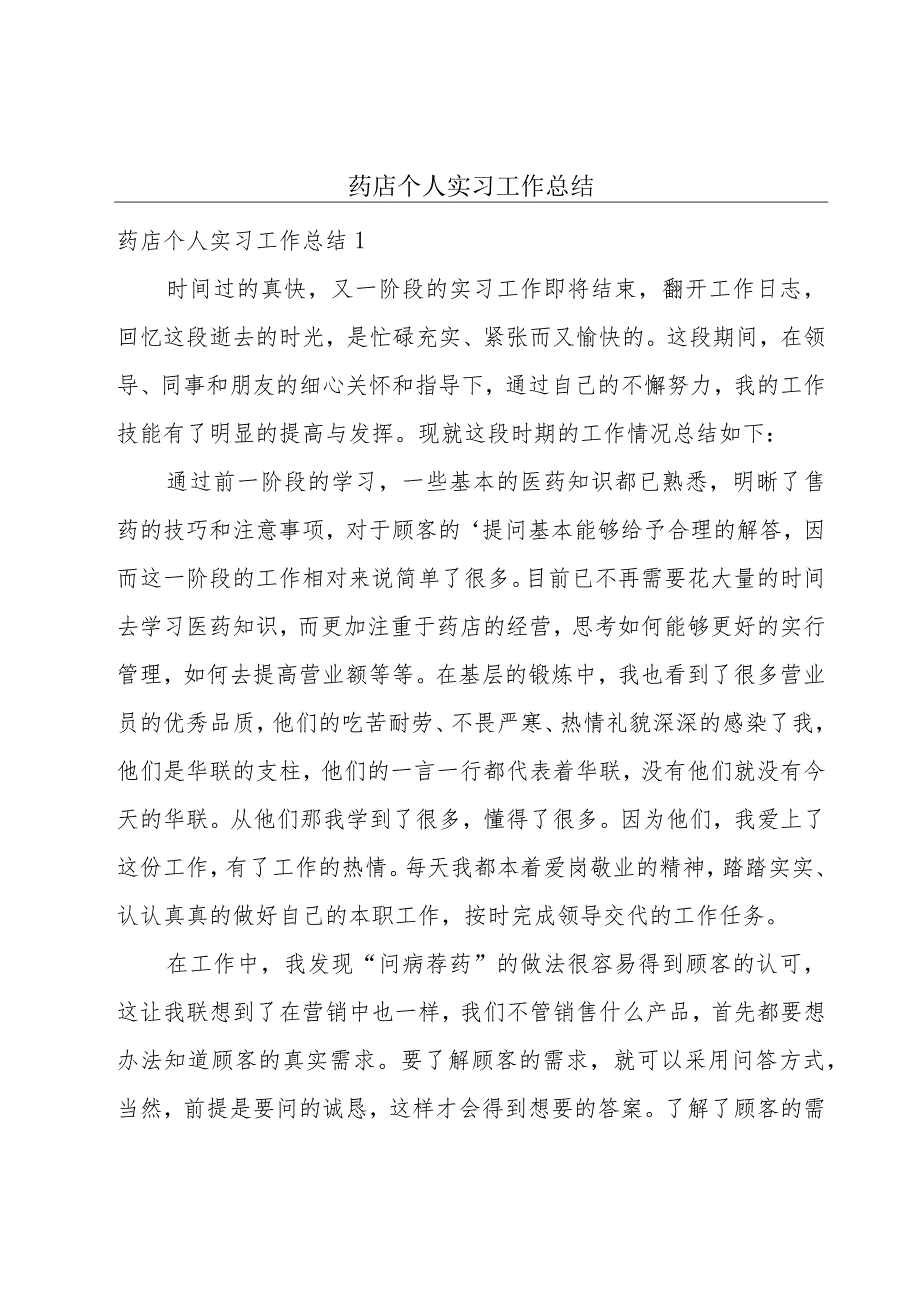 药店个人实习工作总结
药店个人实习工作总结1
时间过的真快，又一阶段的实习工作即将结束，翻开工作日志，
回忆这段逝去的时光，是忙碌充实、紧张而又愉快的。这段期间，在领
导、同事和朋友的细心关怀和指导下，通过自己的不懈努力，我的工作
技能有了明显的提高与发挥。现就这段时期的工作情况总结如下：
通过前一阶段的学习，一些基本的医药知识都已熟悉，明晰了售
药的技巧和注意事项，对于顾客的‘提问基本能够给予合理的解答，因
而这一阶段的工作相对来说简单了很多。目前已不再需要花大量的时间
去学习医药知识，而更加注重于药店的经营，思考如何能够更好的实行
管理，如何去提高营业额等等。在基层的锻炼中，我也看到了很多营业
员的优秀品质，他们的吃苦耐劳、不畏严寒、热情礼貌深深的感染了我，
他们是华联的支柱，他们的一言一行都代表着华联，没有他们就没有今
天的华联。从他们那我学到了很多，懂得了很多。因为他们，我爱上了
这份工作，有了工作的热情。每天我都本着爱岗敬业的精神，踏踏实实、
认认真真的做好自己的本职工作，按时完成领导交代的工作任务。
在工作中，我发现“问病荐药”的做法很容易得到顾客的认可，
这让我联想到了在营销中也一样，我们不管销售什么产品，首先都要想
办法知道顾客的真实需求。要了解顾客的需求，就可以采用问答方式，
当然，前提是要问的诚恳，这样才会得到想要的答案。了解了顾客的需